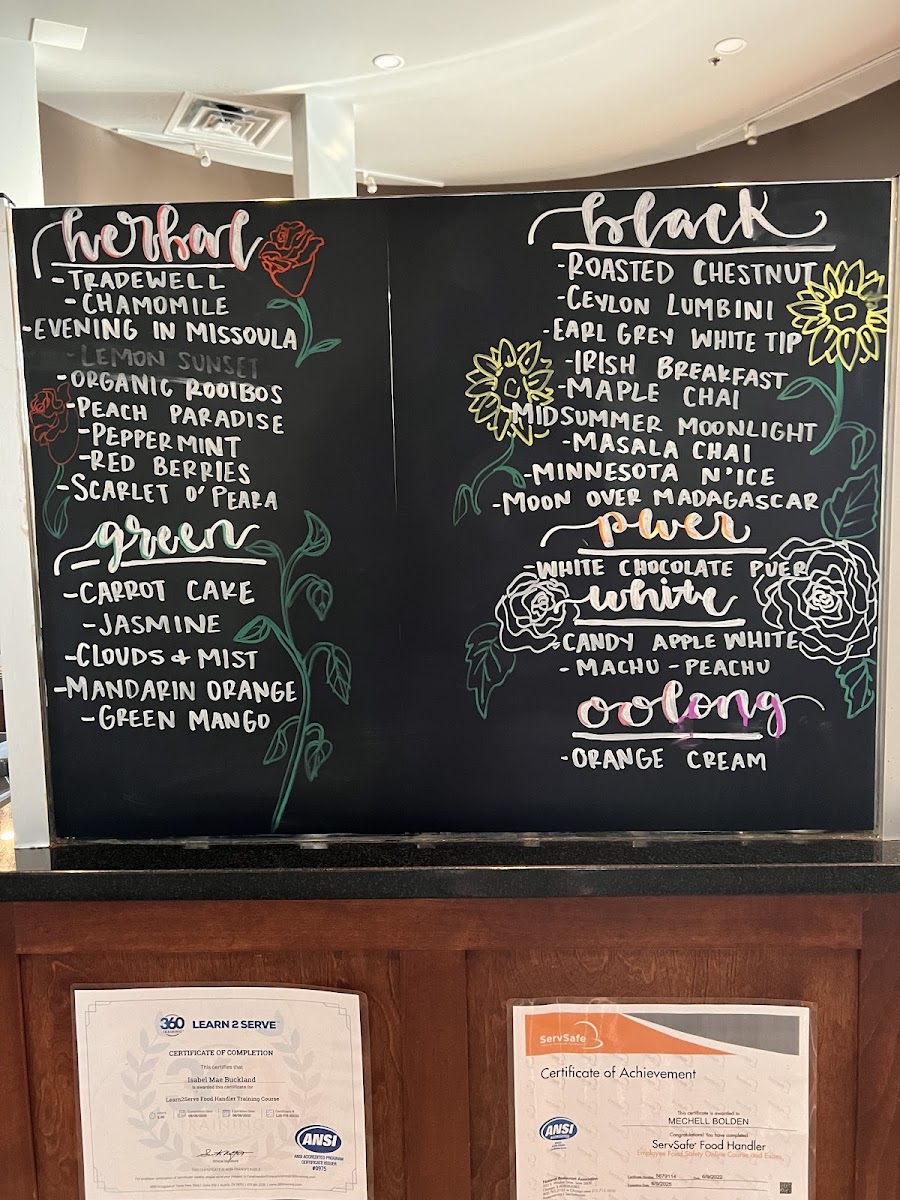 herbal
-TRADEWELL
-CHAMOMILE
-EVENING IN MISSOULA
-LEMON SUNSET
-ORGANIC ROOIBOS
-PEACH PARADISE
-PEPPERMINT
-RED BERRIES
-SCARLET O'PEARA
green
-CARROT CAKE
-JASMINE
-CLOUDS & MIST
-MANDARIN ORANGE
-GREEN MANGO
black
-ROASTED CHESTNUT
-CEYLON LUMBINI
-EARL GREY WHITE TIP
-IRISH BREAKFAST
-MAPLE CHAI
MIDSUMMER MOONLIGHT
-MASALA CHAI
-MINNESOTA N'ICE
-MOON OVER MADAGASCAR
puer
-WHITE CHOCOLATE PUER
white
-CANDY APPLE WHITE
-MACHU-PEACHU
oolong
-ORANGE CREAM
360
LEARN 2 SERVE
CERTIFICATE OF COMPLETION
This certifies that
Isabel Mae Buckland
is awarded this certificate for
Learn2Serve Food Handler Training Course
ANSI
ANSI ACCREDITED PROGRAM
CERTIFICATE ISSUER
#0975
ServSafe
Certificate of Achievement
This certificate is awarded to
MECHELL BOLDEN
Congratulations! You have completed
ServSafe® Food Handler
Employee Food Safety Online Course and Exam
ANSI
National Restaurant Association
5679114
6/9/2022
6/9/2025